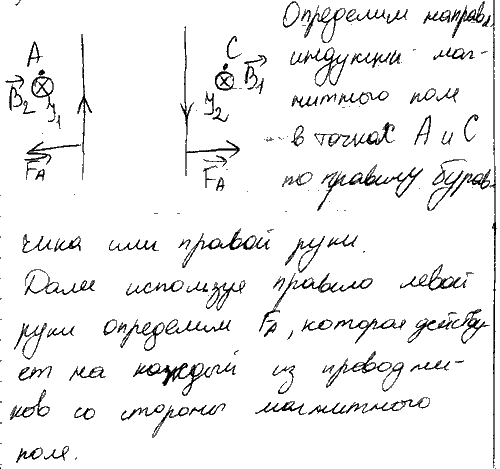 Определим направл.
A C индукции маг-
B₂ B₁ нитного поля
У₁ У₂ в точках А и С
F_A F_A по правилу бурав-
чика или правой руки.
Далее используя правило левой
руки определим F_A, которая действу-
ет на каждый из проводни-
ков со стороны магнитного
поля.